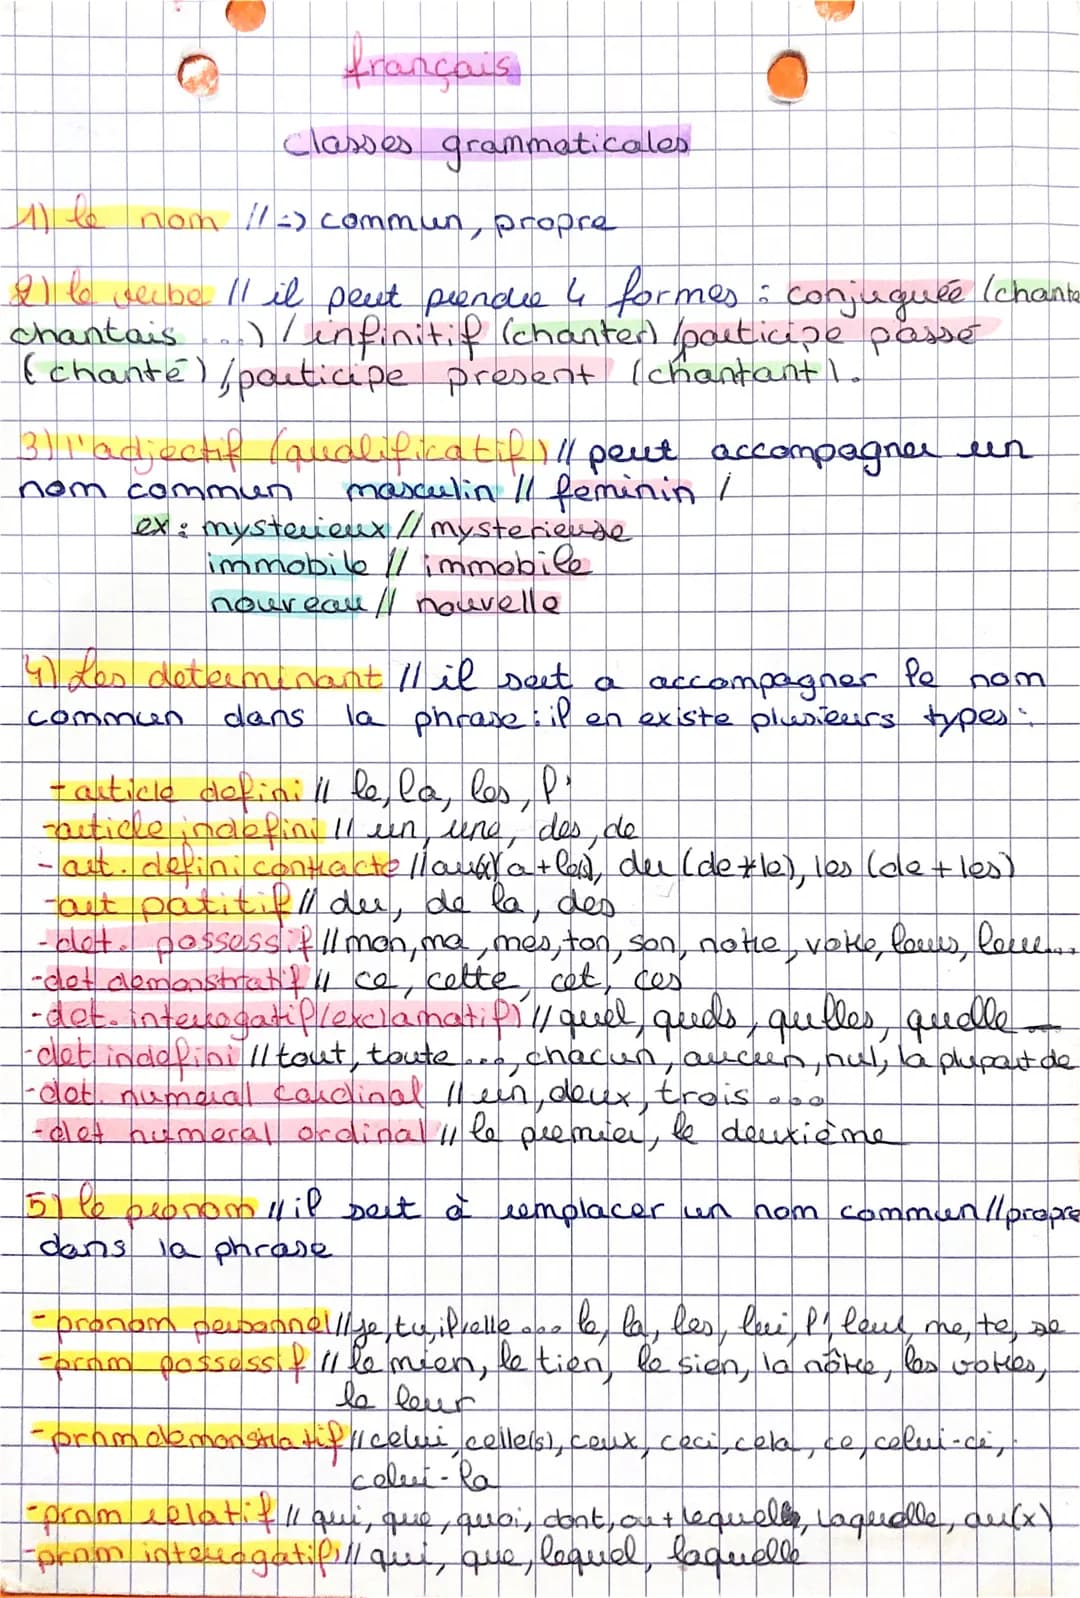 français
classes grammaticales
1) le nom // => commun, propre
2) le verbe // il peut prendre 4 formes : conjuguée (chante
chantais ...) / infinitif (chanter) /participe passé
(chanté) /participe present (chantant).
3) l'adjectif (qualificatif) // peut accompagner un
nom commun masculin // feminin /
ex : mysterieux // mysterieuse
immobile // immobile
nouveau // nouvelle
4) Les determinant // il sert a accompagner le nom
commun dans la phrase : il en existe plusieurs types :
- article defini // le, la, les, l'
- article indefini // un, une, des, de
- art. defini contracte // au(x) (a + les), du (de + le), les (de + les)
- art patitif // du, de la, des
- det. possessif // mon, ma, mes, ton, son, notre, votre, leurs, leur...
- det demonstratif // ce, cette, cet, ces
- det. interrogatif (exclamatif) // quel, quels, quelles, quelle
- det indefini // tout, toute ..., chacun, aucun, nul, la plupart de
- det. numeral cardinal // un, deux, trois ...
- det numeral ordinal // le premier, le deuxième
5) le pronom // il sert à remplacer un nom commun // propre
dans la phrase
- pronom personnel // je, tu, il, elle ... le, la, les, lui, l', leur, me, te, se
- pronm possessif // le mien, le tien, le sien, la nôtre, les votres,
le leur
- pronm demonstratif // celui, celle(s), ceux, ceci, cela, ce, celui-ci,
celui-la
- pronm relatif // qui, que, quoi, dont, ou + lequelle, laquelle, au(x)
- pronm interrogatif // qui, que, lequel, laquelle